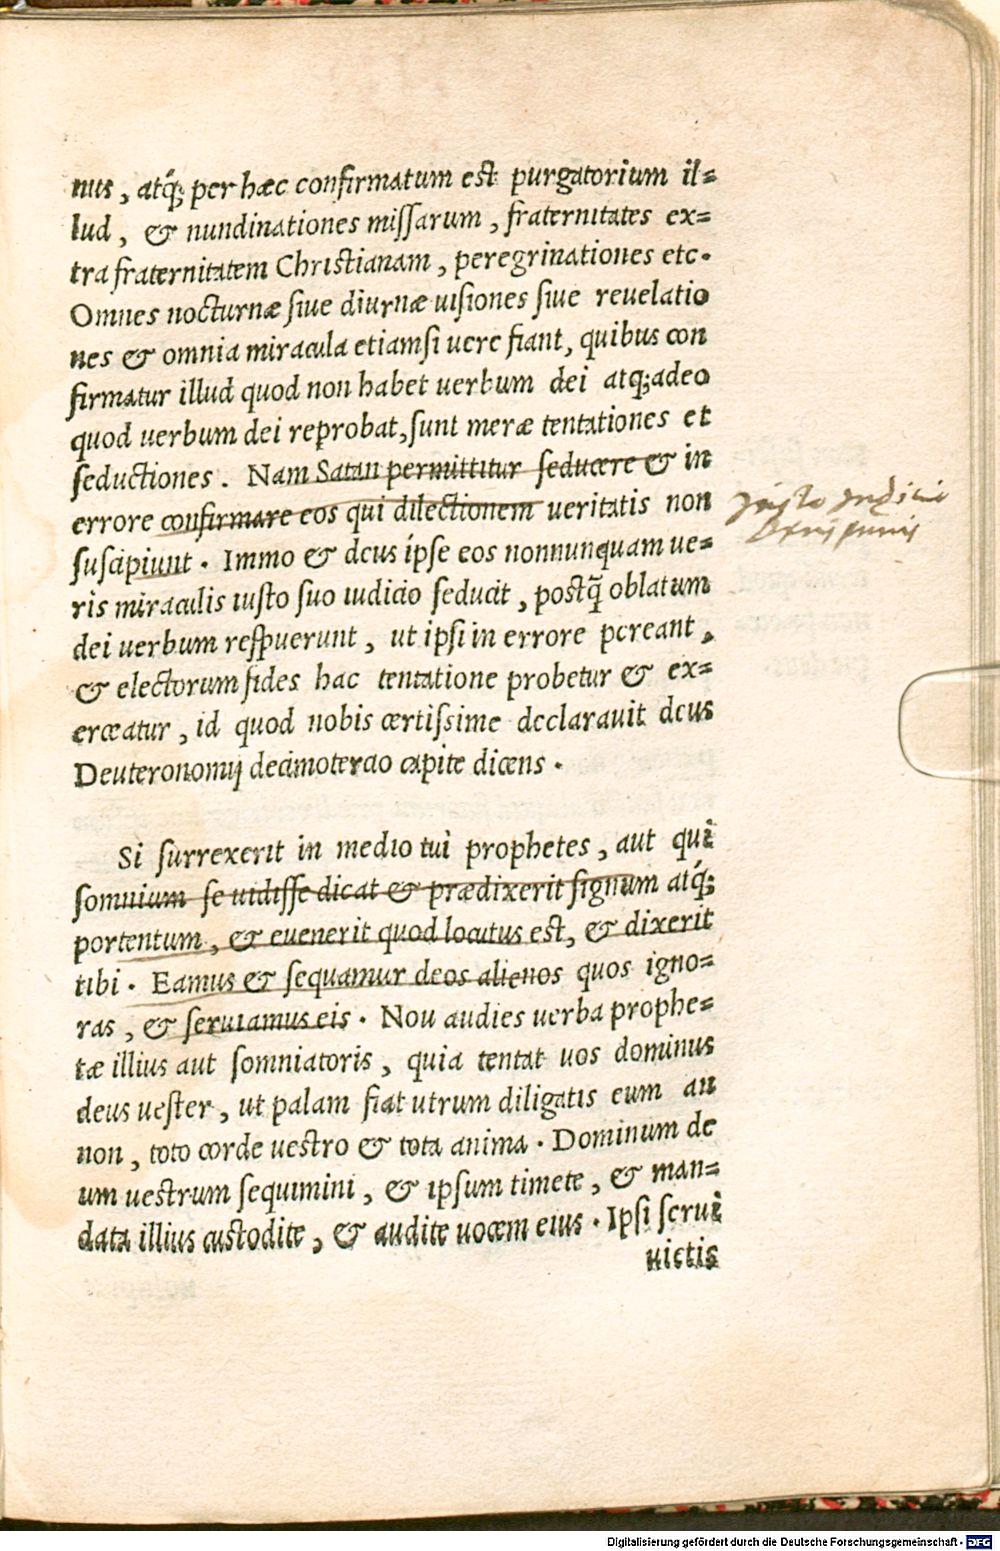 nus, atq́; per hæc confirmatum est purgatorium il=
lud, & nundinationes missarum, fraternitates ex=
tra fraternitatem Christianam, peregrinationes etc.
Omnes nocturnæ siue diurnæ uisiones siue reuelatio
nes & omnia miracula etiamsi uere fiant, quibus con
firmatur illud quod non habet uerbum dei atq;adeo
quod uerbum dei reprobat, sunt meræ tentationes et
seductiones. Nam Satan permittitur seducere & in
errore confirmare eos qui dilectionem ueritatis non
iusto iudicio
suscipiunt. Immo & deus ipse eos nonnunquam ue=
ris miraculis iusto suo iudicio seducit, postq̃ oblatum
dei uerbum respuerunt, ut ipsi in errore pereant,
& electorum fides hac tentatione probetur & ex=
erceatur, id quod nobis certissime declarauit deus
Deuteronomij decimotercio capite dicens.
Si surrexerit in medio tui prophetes, aut qui
somnium se uidisse dicat & prædixerit signum atq́;
portentum, & euenerit quod locutus est, & dixerit
tibi. Eamus & sequamur deos alienos quos igno=
ras, & seruiamus eis. Nou audies uerba prophe=
tæ illius aut somniatoris, quia tentat uos dominus
deus uester, ut palam fiat utrum diligatis eum an
non, toto corde uestro & tota anima. Dominum de
um uestrum sequimini, & ipsum timete, & man=
data illius custodite, & audite uocem eius. Ipsi serui
uictis
Digitalisierung gefördert durch die Deutsche Forschungsgemeinschaft - DFG